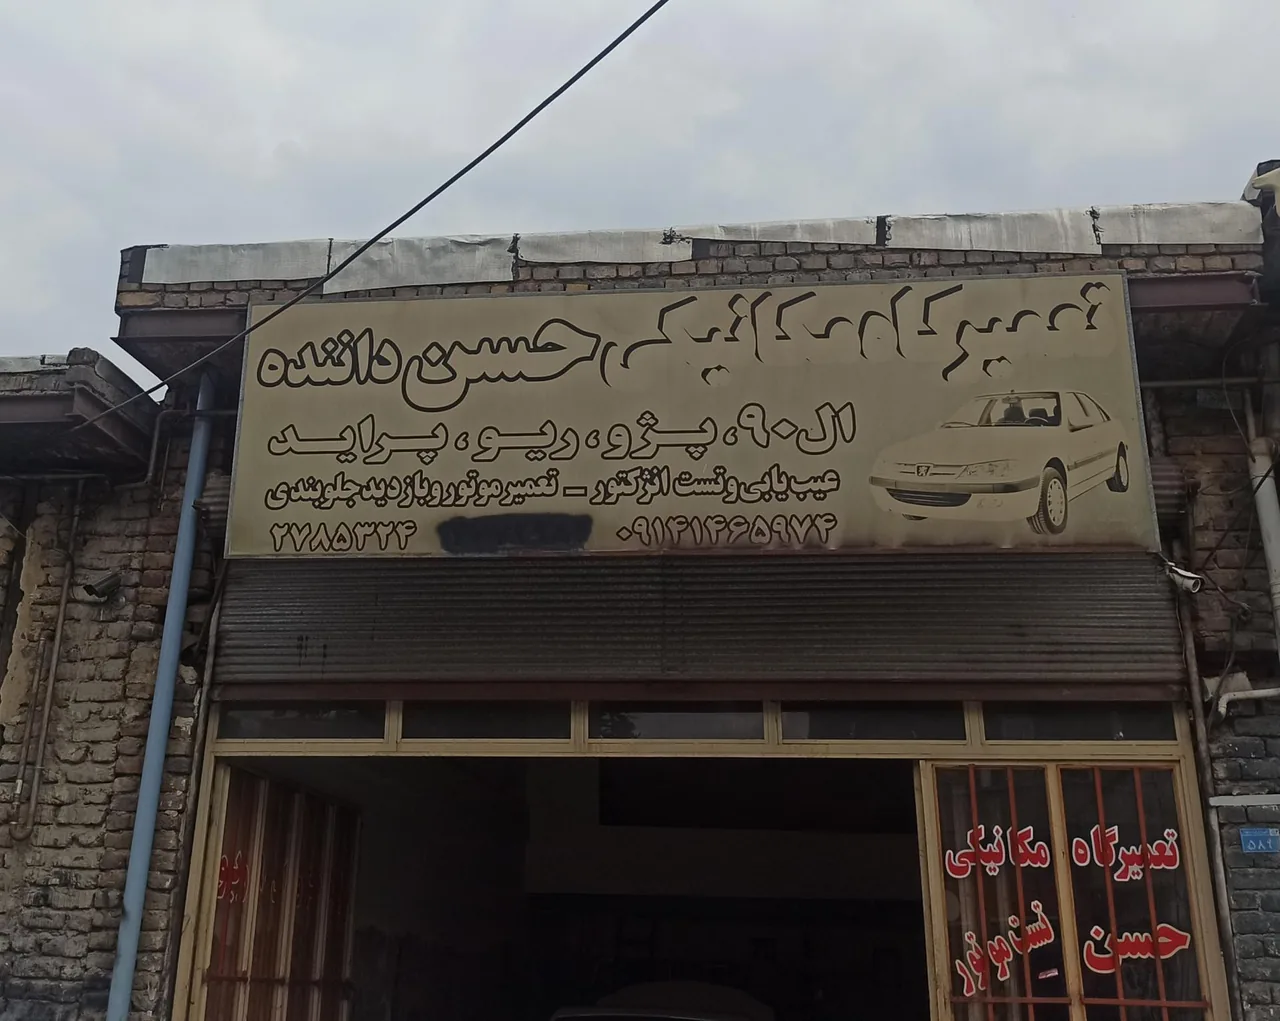 تعمیرگاه مکانیکی حسن داننده
ال۹۰، پژو، ریو، پراید
عیب یابی و تست انژکتور - تعمیر موتور و بازدید جلوبندی
۰۹۱۴۱۴۶۵۹۷۴
۲۷۸۵۳۲۴
تعمیرگاه مکانیکی
حسن
تست موتور